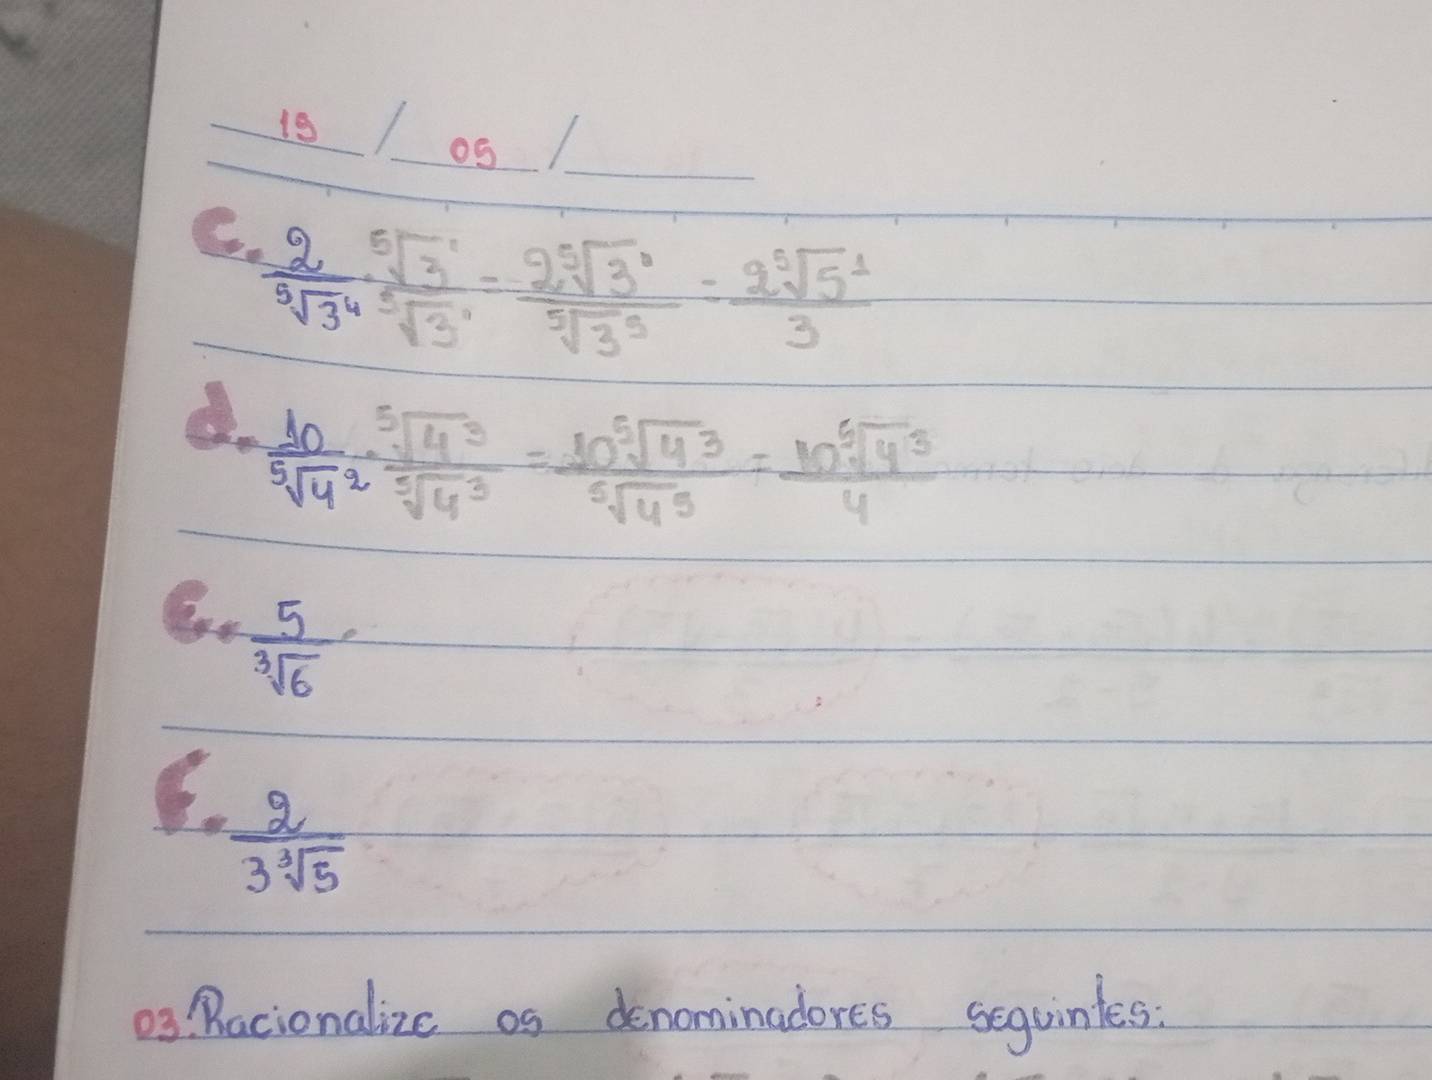 19 / 05 /
c. 2/⁵√3⁴ · ⁵√3¹/⁵√3¹ = 2⁵√3¹/⁵√3⁵ = 2⁵√5¹/3
d. 10/⁵√4² · ⁵√4³/⁵√4³ = 10⁵√4³/⁵√4⁵ = 10⁵√4³/4
e. 5/³√6 ·
f. 2/3³√5
03. Racionalize os denominadores seguintes: